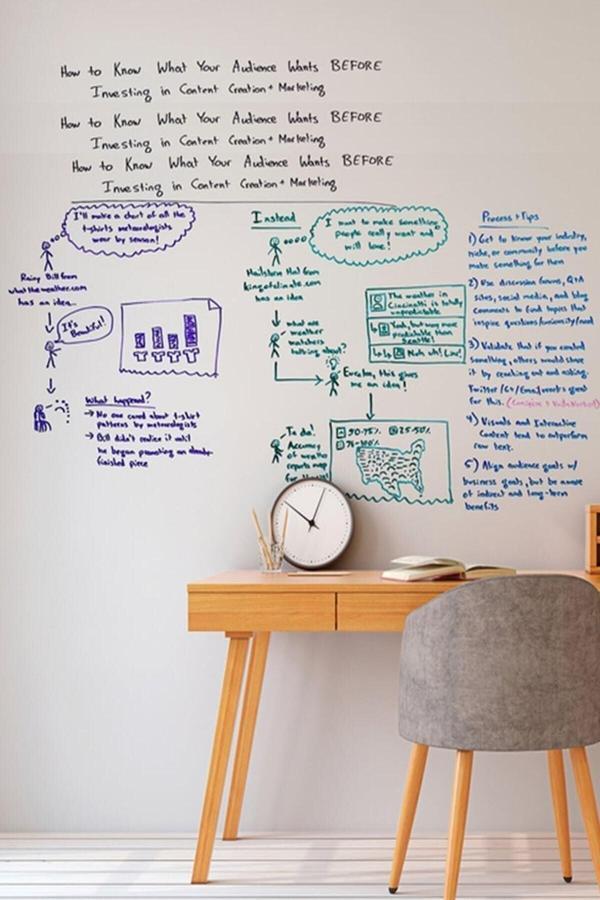 How to Know What Your Audience Wants BEFORE
Investing in Content Creation + Marketing
How to Know What Your Audience Wants BEFORE
Investing in Content Creation + Marketing
How to Know What Your Audience Wants BEFORE
Investing in Content Creation + Marketing
I'll make a chart of all the
t-shirts meteorologists
wear by season!
Rainy Bill from
whattheweather.com
has an idea...
It's
Beautiful!
What happened?
→ No one cared about t-shirt
patterns by meteorologists
→ Bill didn't realize it until
he began promoting an already-
finished piece
Instead
I want to make something
people really want and
will love!
Hailstorm Hal from
kingofclimate.com
has an idea
what are
weather
watchers
talking about?
The weather in
Cincinatti is totally
unpredictable
Yeah, but way more
predictable than
Seattle!
Nuh uh! Liar!
Eureka, this gives
me an idea!
Ta da!
Accuracy
of weather
reports map
50-75%
25-50%
76-100%
Process + Tips
1) Get to know your industry,
niche, or community before you
make something for them
2) Use discussion forums, Q+A
sites, social media, and blog
comments to find topics that
inspire questions/curiosity/need
3) Validate that if you created
something, others would share
it by reaching out and asking.
Twitter/G+/Email/events great
for this.
4) Visuals and Interactive
Content tend to outperform
raw text.
5) Align audience goals w/
business goals, but be aware
of indirect and long-term
benefits